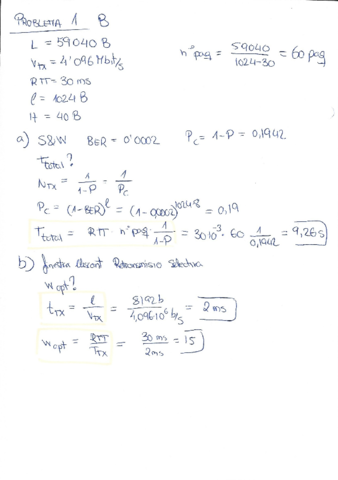 PROBLEMA 1 B
L = 59040 B
Vtx = 4'096 Mbit/s
nº paq = 59040 / 1024-30 = 60 paq
RTT = 30 ms
l = 1024 B
H = 40 B
a) S&W BER = 0'0002 Pc = 1-P = 0,1942
Ttotal?
NTX = 1/1-P = 1/Pc
Pc = (1-BER)^l = (1-0,0002)^1024·8 = 0,19
Ttotal = RTT · nº paq · 1/1-P = 30·10^-3 · 60 · 1/0,1942 = 9,26s
b) finestra lliscant Retransmissio Selectiva
Wopt?
tTX = l/VTX = 8192b / 4,096·10^6 b/s = 2 ms
Wopt = RTT/TTX = 30 ms / 2 ms = 15